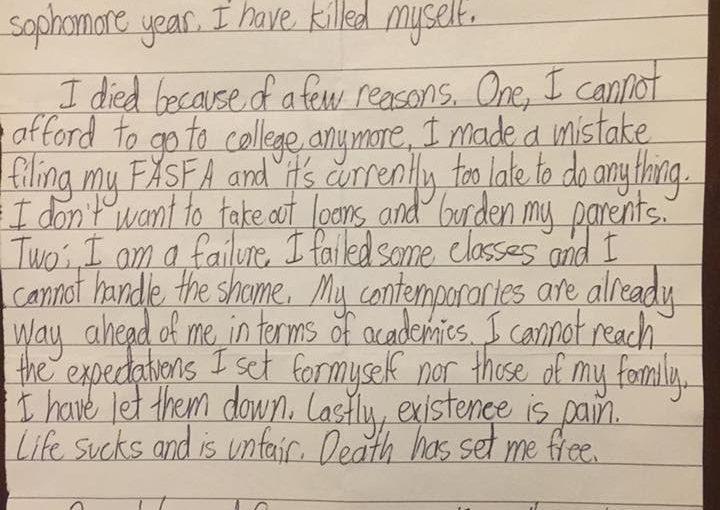 sophomore year. I have killed myself.
I died because of a few reasons. One, I cannot
afford to go to college anymore, I made a mistake
filing my FASFA and it's currently too late to do anything.
I don't want to take out loans and burden my parents.
Two; I am a failure. I failed some classes and I
cannot handle the shame. My contemporaries are already
way ahead of me in terms of academics. I cannot reach
the expectations I set for myself nor those of my family.
I have let them down. Lastly, existence is pain.
Life sucks and is unfair. Death has set me free.